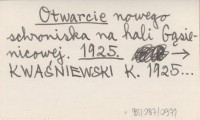 Otwarcie nowego
schroniska na hali Gąsie-
nicowej. 1925. →
KWAŚNIEWSKI K. 1925...